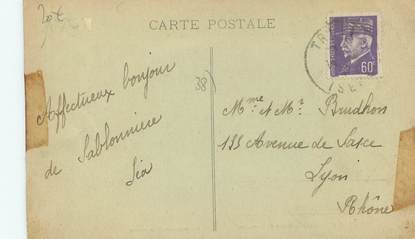 20t
CARTE POSTALE
TR
ISE
60c
38)
Affectueux bonjour
de Sablonnière
Lia
Mme et Mr Brudhon
133 Avenue de Saxe
Lyon
Rhône